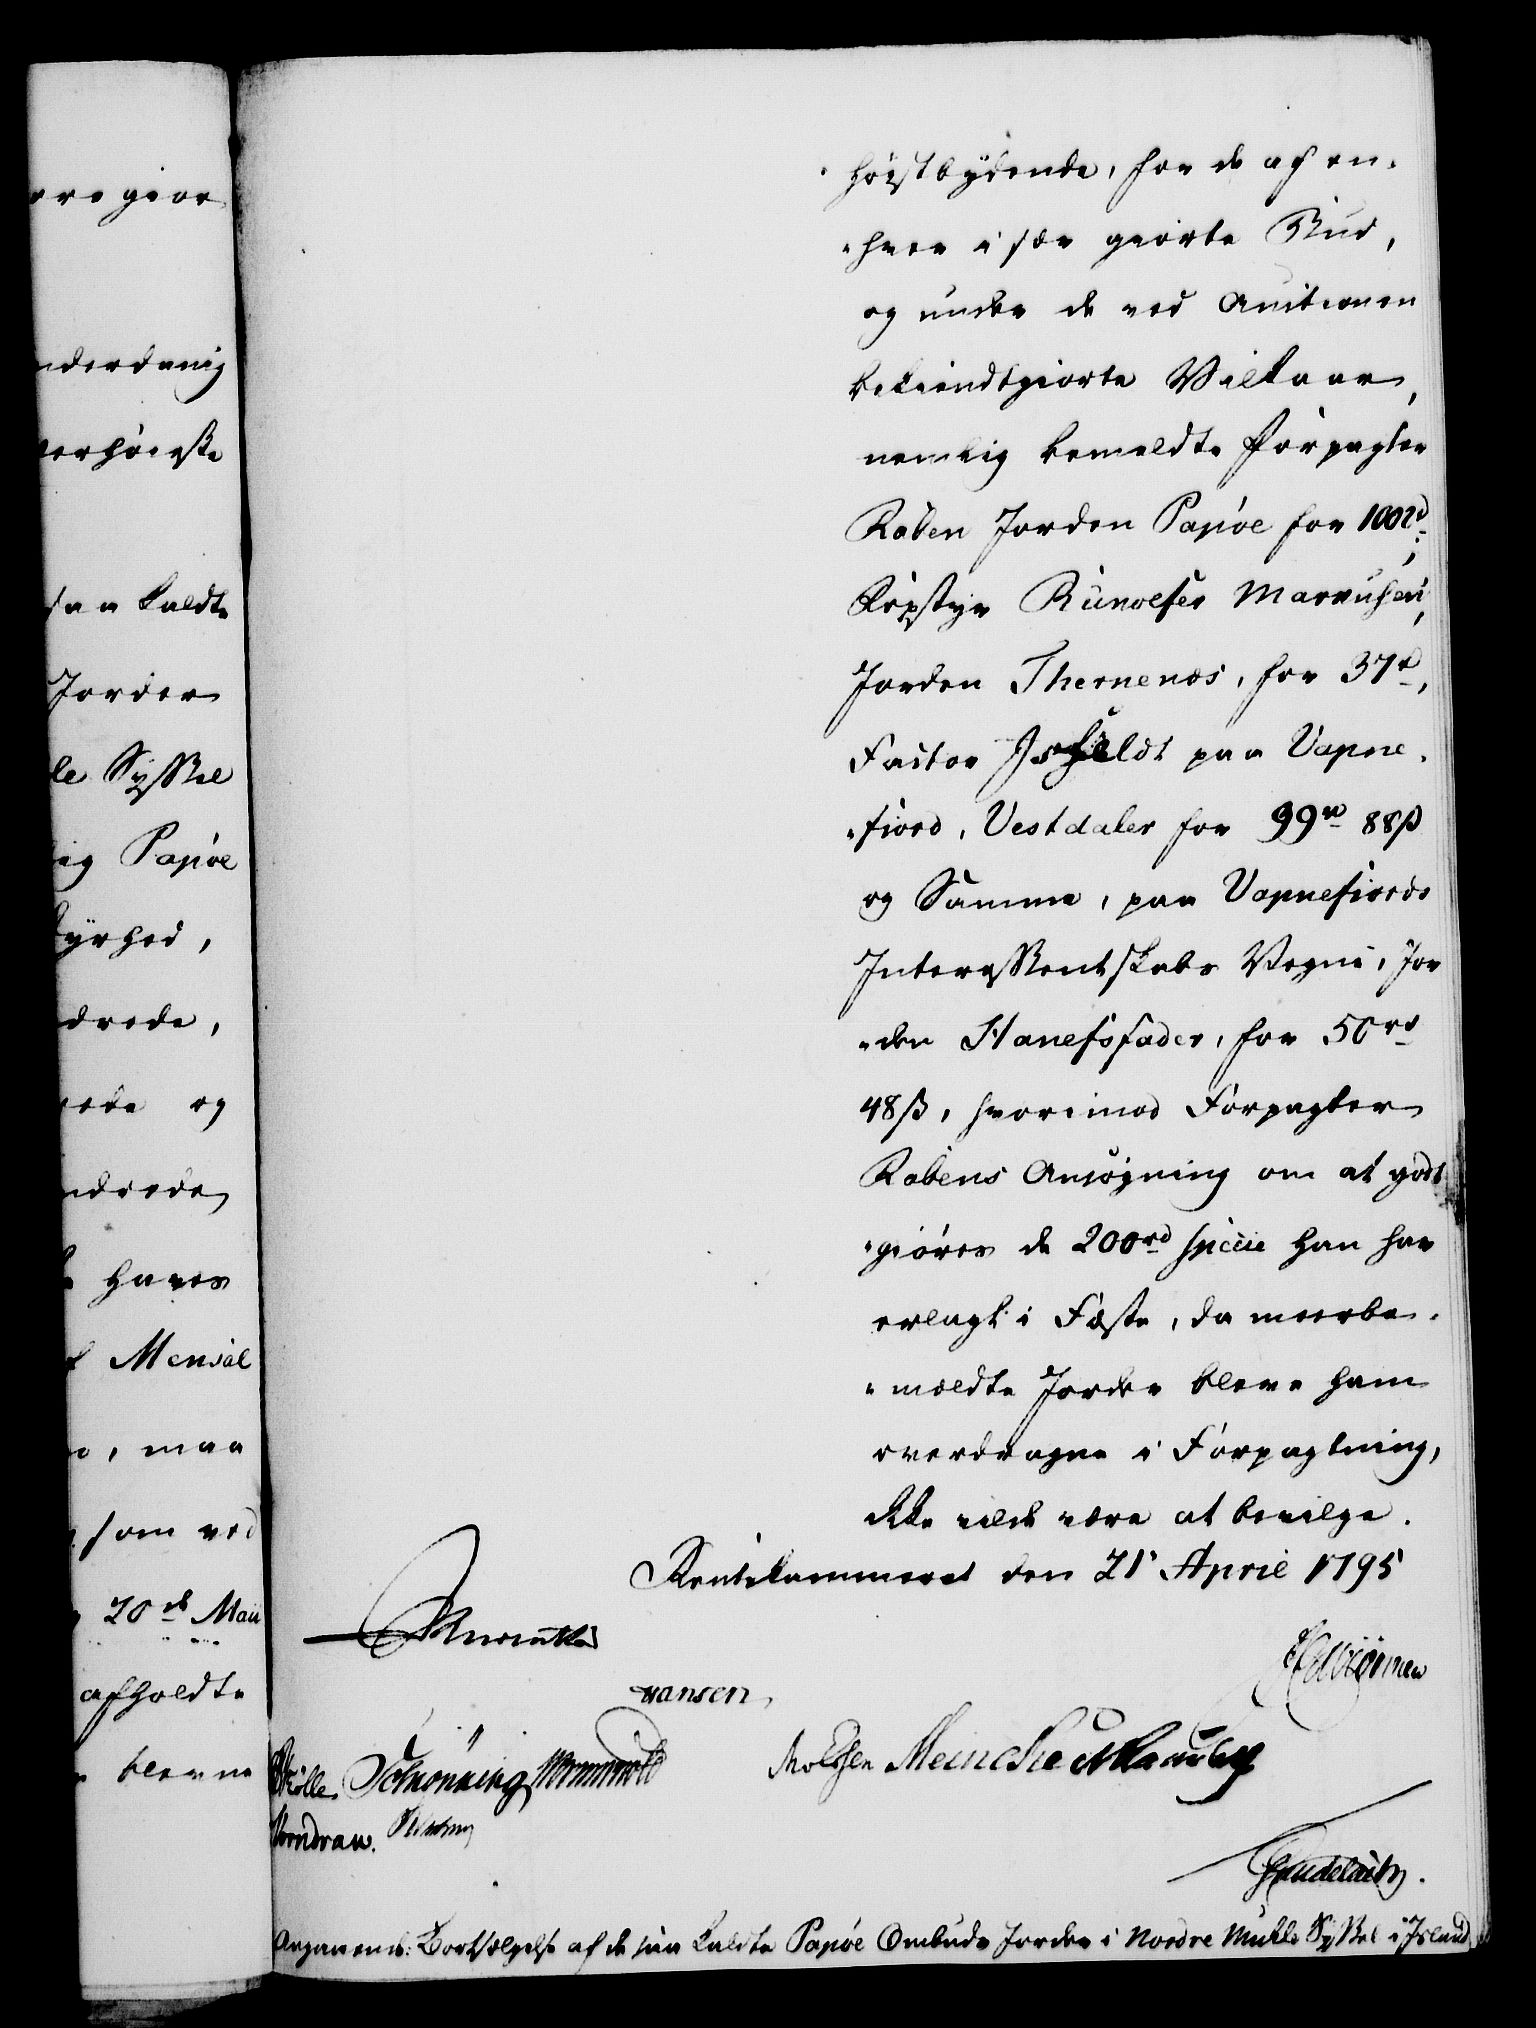 ere giør
nderdanig
lerhøieste
saa kaldte
Jorder
le Syssel
ig Papøe
Dyrhed,
drede,
rede og
ndrede
Haves
Mensal
, maa
som ved
20de Maii
afholdte
bleve
høistbÿdende, for de af en-
-hver i sær giorte Bud,
og under de ved Auctionen
bekiendtgiorte Vilkaar,
nemlig bemeldte Forpagter
Raben Jorden Papøe for 100rd,
Repstyr Runolfer Marcusen,
Jorden Thernenæs, for 37rd,
Factor Isfeldt paa Vapne-
-fiord, Vestdaler for 99rd 88ß
og Samme, paa Vapnefiords
Interessentskabs Vegne, Jor
-den Hanefsfader, for 50rd
48ß, hvorimod Forpagter
Rabens Ansøgning om at godt
-giøres de 200rd specie han har
erlagt i Fæste, da meerbe-
-meldte Jorder bleve ham
overdragne i Forpagtning,
ikke vilde være at bevilge.
Rentekammeret den 21 April 1795
Reventlow
Hansen
Schønning Wormskiold
Meincke
Wendrau.
Angaaende: Bortsælgelse af de saa kaldte Papøe Ombuds Jorder i Nordre Muhle Syssel i Island